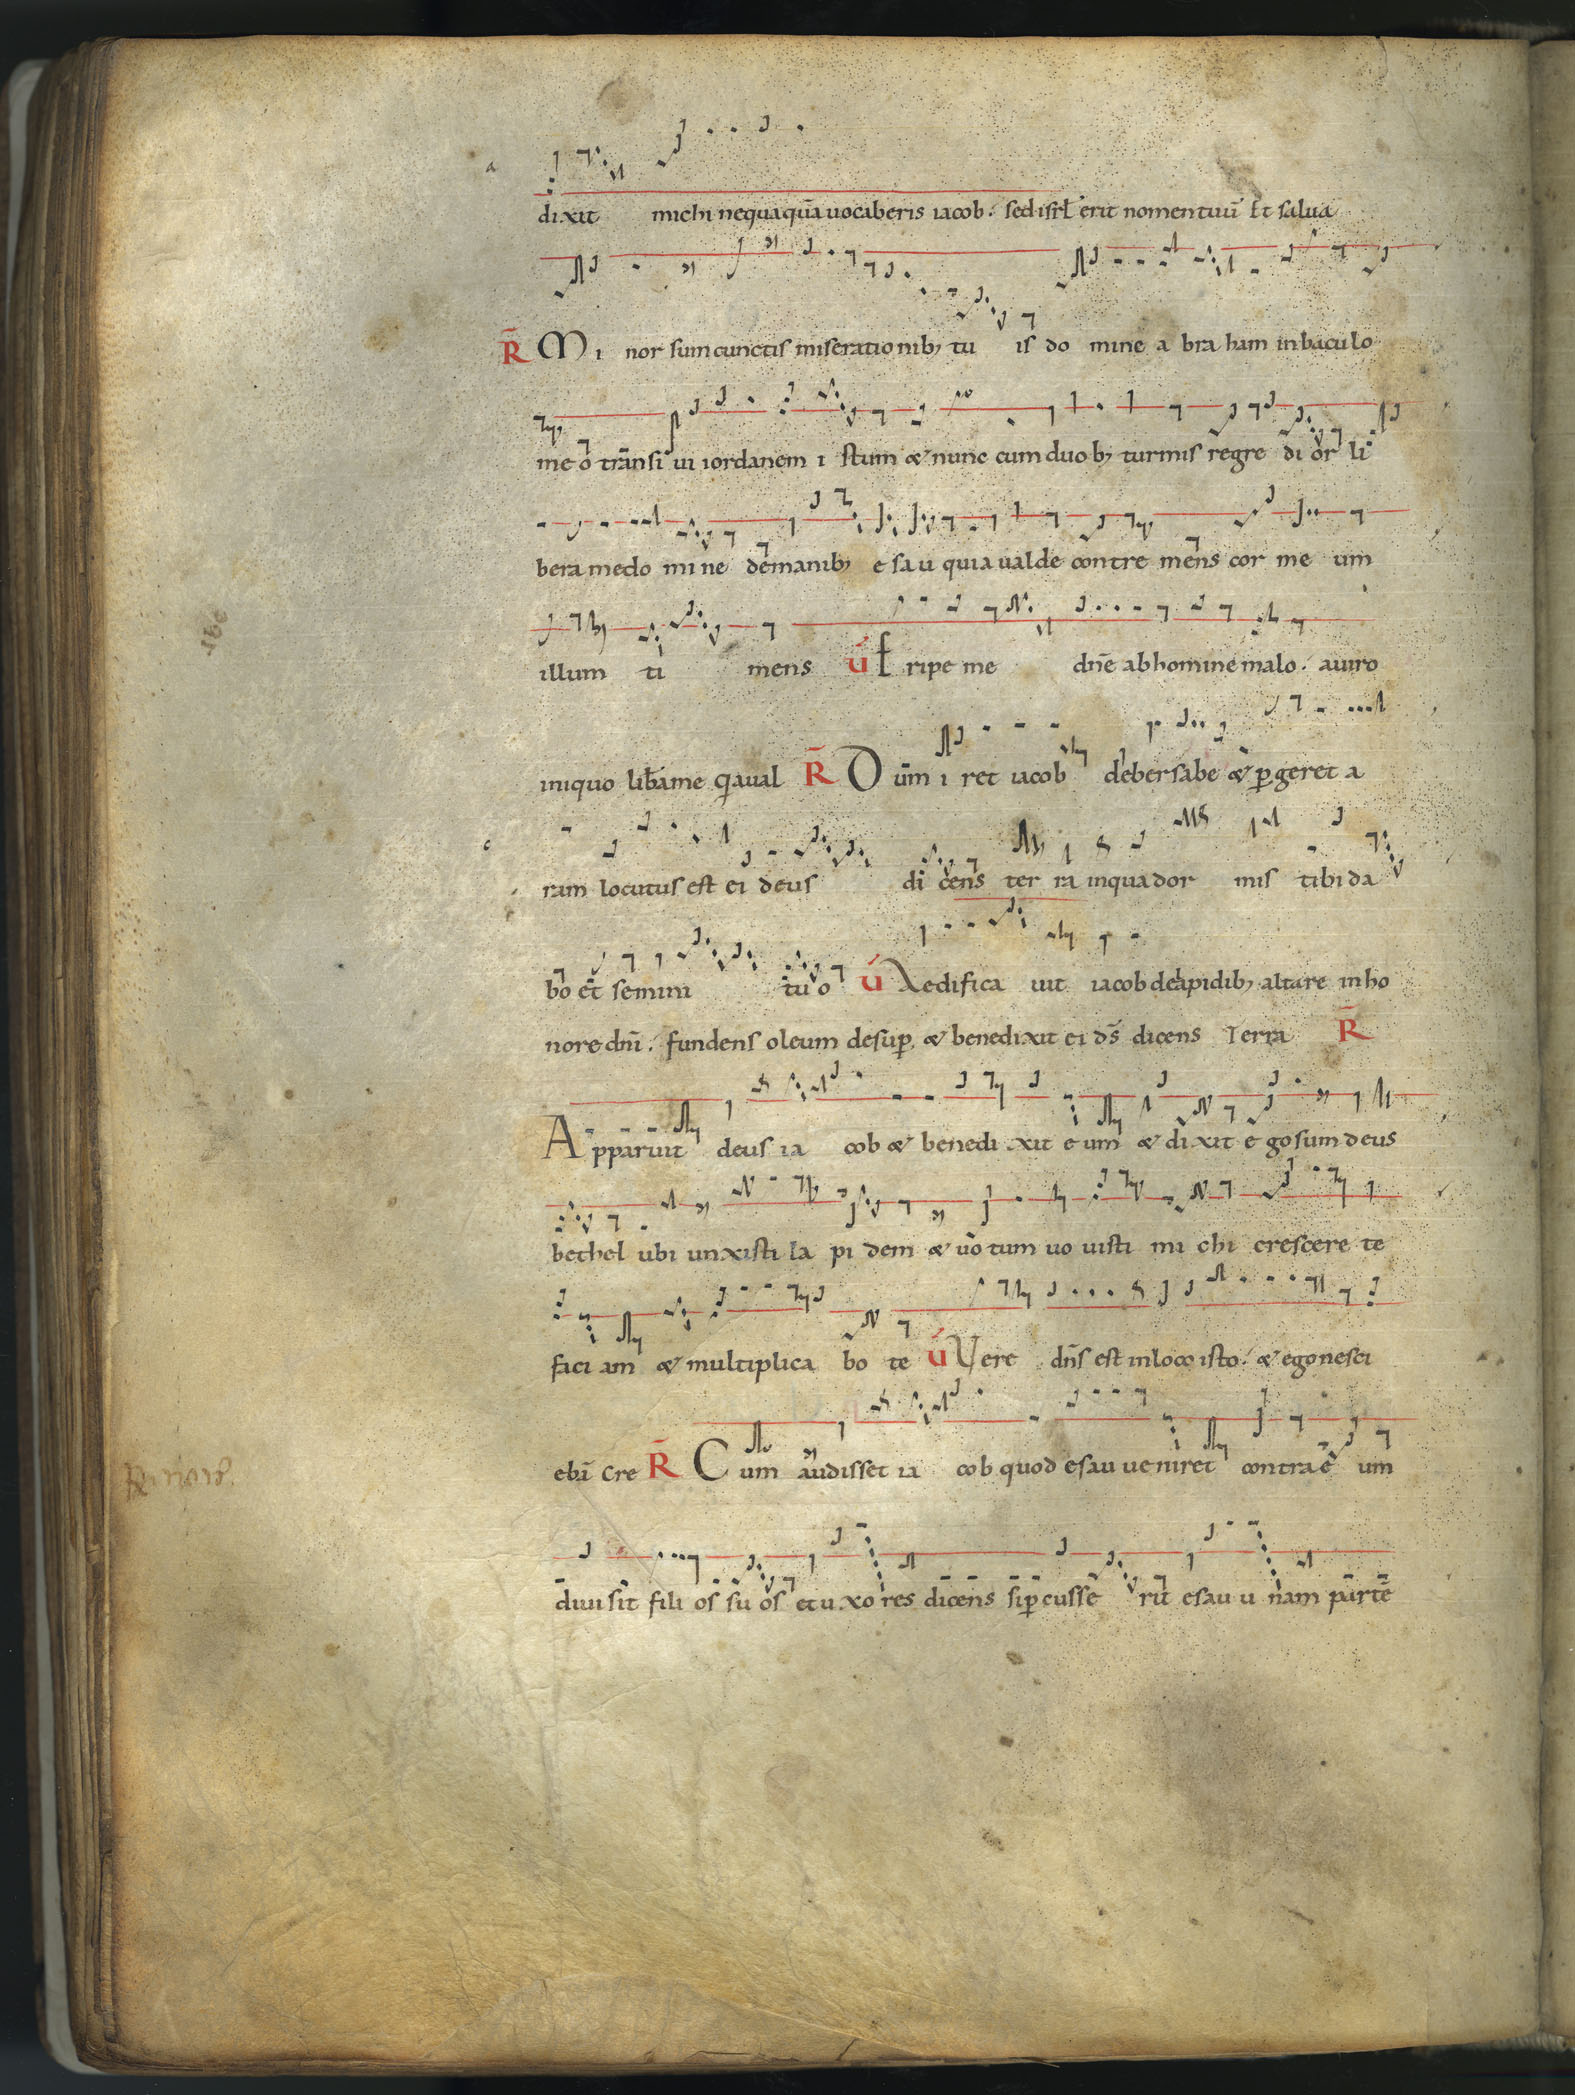 dixit michi nequaquā uocaberis iacob. sed isrl̄ erit nomen tuū Et salua
R̄ Mi nor sum cunctis miseratio nib; tu is do mine a bra ham in baculo
me o transi ui iordanem i stum & nunc cum duo b; turmis regre di or li
bera me do mi ne de manib; e sa u quia ualde contre mens cor me um
illum ti mens V́ E ripe me dn̄e ab homine malo. a uiro
iniquo lib̄a me q̄a ual R̄ D um i ret iacob de bersabe & ꝑgeret a
ram locutus est ei deus di cens ter ra in qua dor mis tibi da
bo et semini tu o V́ Aedifica uit iacob de lapidib; altare in ho
nore dn̄i. fundens oleum desuꝑ & benedixit ei ds̄ dicens Terra R̄
Apparuit deus ia cob & benedi xit e um & di xit e go sum deus
bethel ubi unxisti la pi dem & uo tum uo uisti mi chi crescere te
faci am & multiplica bo te V́ Vere dn̄s est in loco isto. & ego nesci
ebā Cre R̄ C um audisset ia cob quod esau ue niret contra e um
diui sit fili os su os et u xo res dicens si ꝑcusse rit esau u nam parte